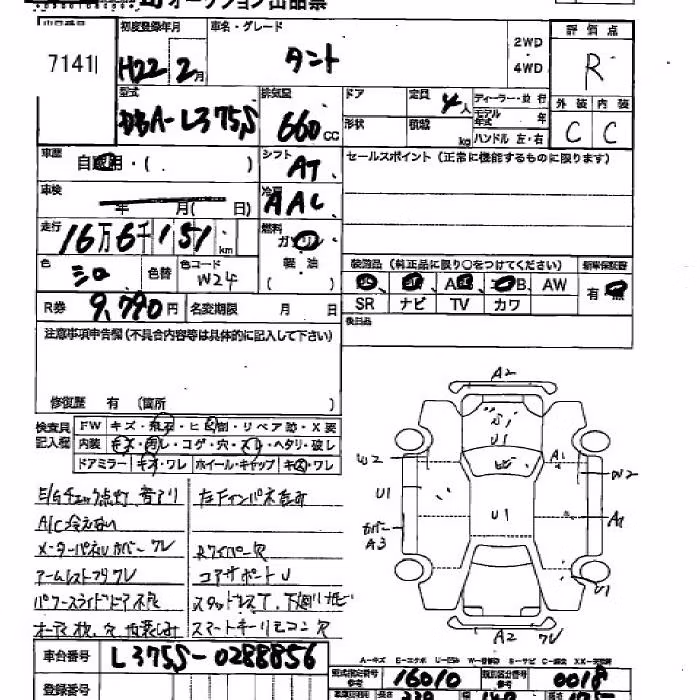 オークション出品票
出品番号 初度登録年月 車名・グレード 2WD・4WD 評価点
7141 H22年 2月 タント R
型式 排気量 ドア 定員 4人 ディーラー・並行 外装 内装
DBA-L375S 660cc 形状 積載 kg モデル年式 年 C C
ハンドル 左・右
車歴 自家用・( ) シフト AT セールスポイント (正常に機能するものに限ります)
車検 年 月( 日) 冷房 AAC
走行 16万6千151km 燃料 ガソリン 軽・油 ( )
色 シロ 色替 色コード W24
装備品 (純正品に限り○をつけてください) 新車保証書
AW 有・無
SR ナビ TV カワ
R券 9,790円 名変期限 月 日
後日品
注意事項申告欄 (不具合内容等は具体的に記入して下さい)
修復歴 有 (箇所 )
検査員記入欄 FW キズ・飛石・ヒビ割・リペア跡・X要
内装 キズ・汚レ・コゲ・穴・スレ・ヘタリ・破レ
ドアミラー キズ・ワレ ホイール・キャップ キズ・ワレ
E/Gチェック点灯 音アリ
A/C冷えない
メーターパネルカバーワレ
アームレストフタワレ
パワースライドドア不良
Rワイパー欠
コアサポートU
スタッドレスT、下廻りサビ
スマートキーリモコン欠
A2
U1
W2
A1
W2
U1
U1
A1
カバー A3
U1
A2 ワレ
A-キズ E-エクボ U-凹み W-補修跡 S-サビ C-腐食 XX-交換済
車台番号 L375S-0288856
型式指定番号 16010 類別区分番号 0018
登録番号